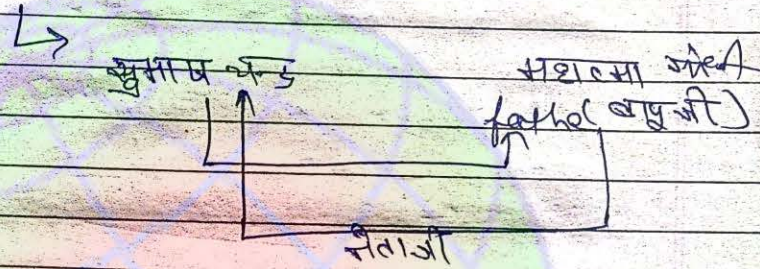 सुभाष चन्द्र महात्मा गाँधी
father (बापू जी)
नेताजी